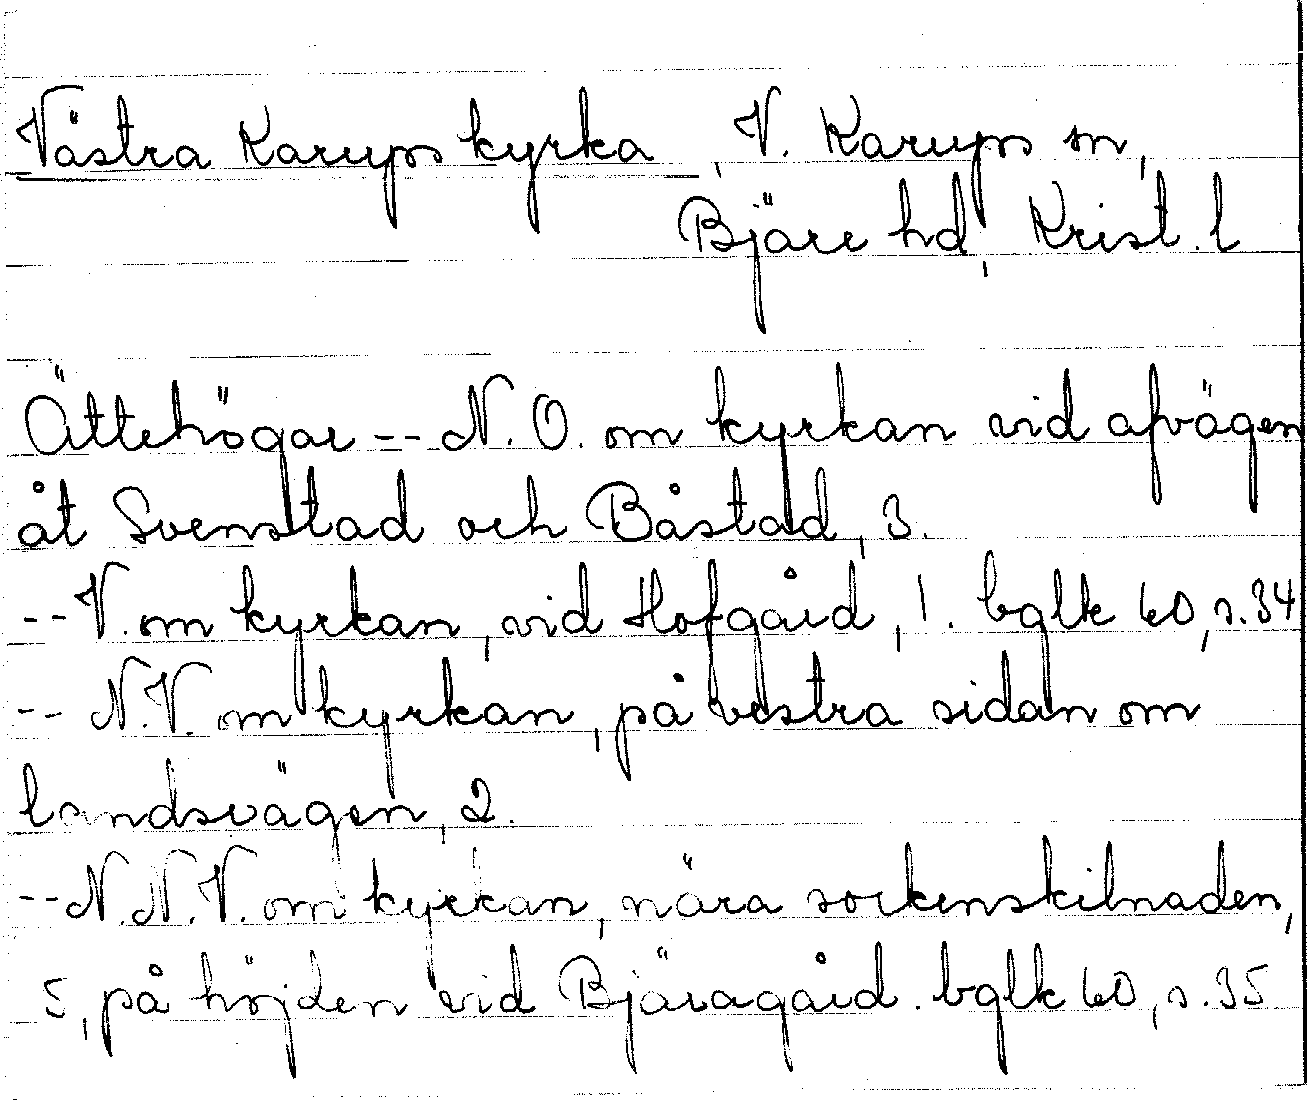 Västra Karups kyrka, V. Karups sn,
Bjäre hd, Krist. l
Ättehögar -- N. O. om kyrkan vid afvägen
åt Svenstad och Båstad, 3.
-- V. om kyrkan, vid Hofgård, 1. bglk 60, s. 34
-- N.V. om kyrkan, på vestra sidan om
landsvägen, 2.
-- N.N.V. om kyrkan, nära sockenskilnaden,
5, på höjden vid Bjäragård. bglk 60, s. 35